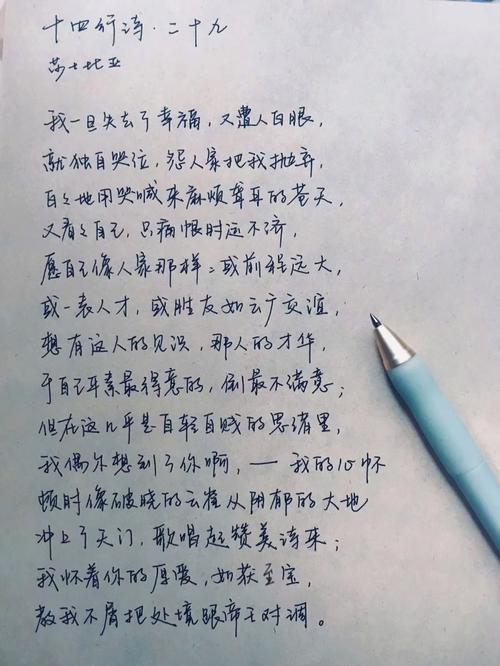 十四行诗·二十九
莎士比亚
我一旦失去了幸福，又遭人白眼，
就独自哭泣，怨人家把我抛弃，
白白地用哭喊来麻烦聋耳的苍天，
又看看自己，只痛恨时运不济，
愿自己像人家那样：或前程远大，
或一表人才，或胜友如云广交谊，
想有这人的见识，那人的才华，
于自己平素最得意的，倒最不满意；
但在这几乎是自轻自贱的思绪里，
我偶尔想到了你啊，——我的心怀
顿时像破晓的云雀从阴郁的大地
冲上了天门，歌唱起赞美诗来；
我怀着你的厚爱，如获至宝，
教我不屑把处境跟帝王对调。